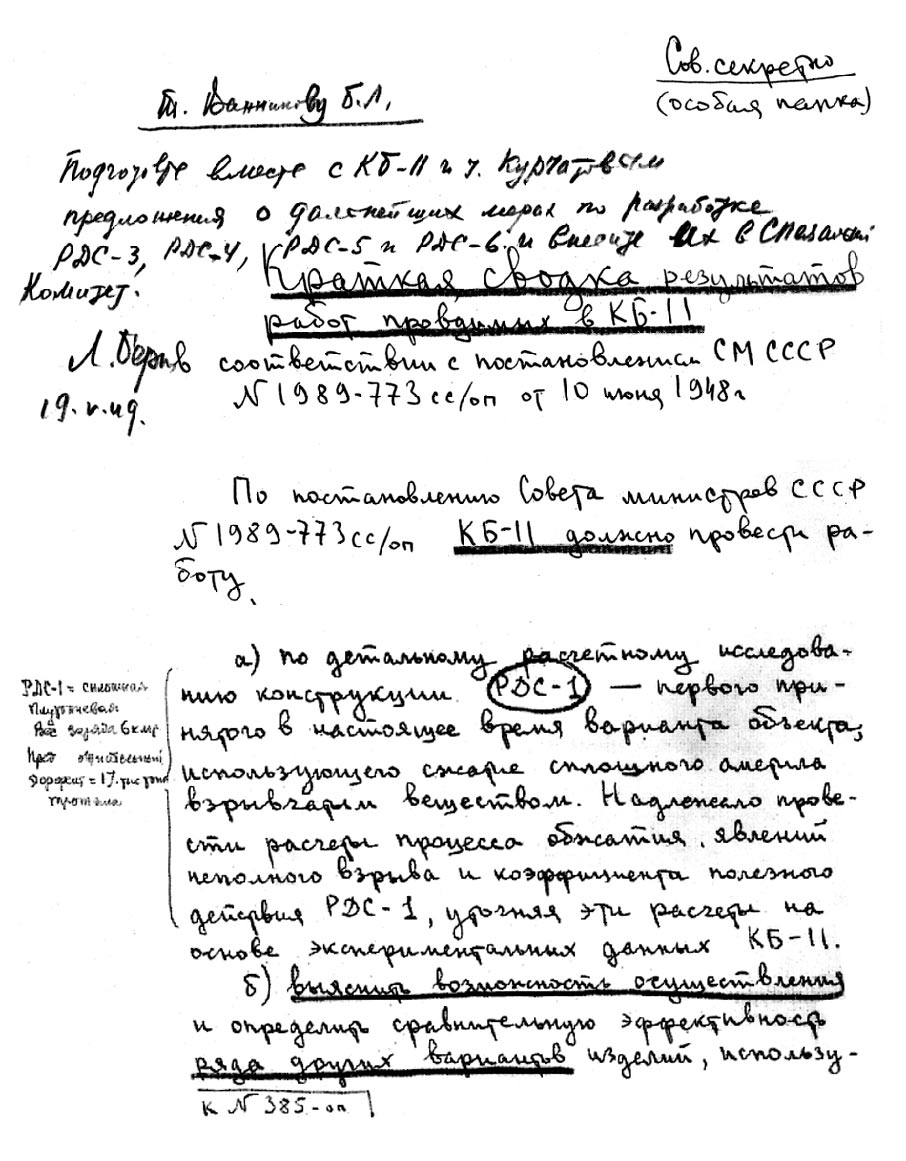 Сов. секретно
(особая папка)
т. Ванникову Б.Л.
Подготовьте вместе с КБ-11 и т. Курчатовым
предложения о дальнейших мерах по разработке
РДС-3, РДС-4, РДС-5 и РДС-6 и внесите их в Специальный
Комитет.
Краткая сводка результатов
работ проводимых в КБ-11
Л. Берия
в соответствии с постановлением СМ СССР
N 1989-773сс/оп от 10 июня 1948г
По постановлению Совета министров СССР
N 1989-773сс/оп КБ-11 должно провести ра-
боту
а) по детальному расчетному исследова-
нию конструкции РДС-1 — первого при-
нятого в настоящее время варианта объекта,
использующего сжатие сплошного америла
взрывчатым веществом. Надлежало прове-
сти расчеты процесса обжатия, явлений
неполного взрыва и коэффициента полезного
действия РДС-1, уточняя эти расчеты на
основе экспериментальных данных КБ-11.
РДС-1 = сплошная
плутониевая
Вес заряда 6 кмг
эффект = 17. тыс тонн
тротила
б) выяснить возможность осуществления
и определить сравнительную эффективность
ряда других вариантов изделий, использу-
к N 385-оп